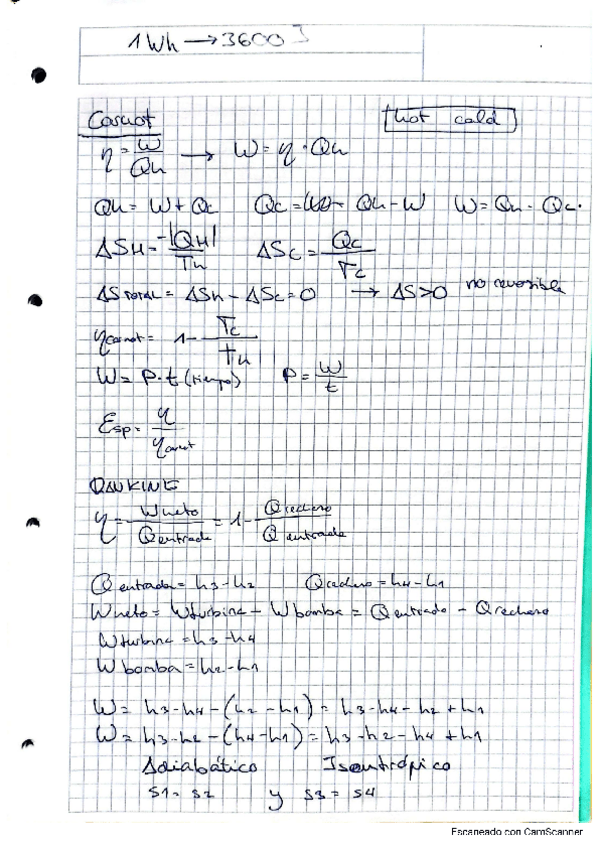 1Wh → 3600 J
Carnot
hot cold
η = W/Qh → W = η · Qh
Qh = W + Qc Qc = Qh - W W = Qh - Qc.
ΔSH = -|QH|/Th ΔSc = Qc/Tc
ΔS TOTAL = ΔSh - ΔSc = 0 → ΔS>0 no reversible
ηcarnot = 1 - Tc/TH
W = P·t (tiempo) P = W/t
Esp = η/ηcarnot
RANKINE
η = Wneto/Qentrada = 1 - Qrechazo/Qentrada
Qentrada = h3-h2 Qrechazo = h4-h1
Wneto = Wturbina - Wbomba = Qentrada - Qrechazo
Wturbina = h3-h4
Wbomba = h2-h1
W = h3-h4-(h2-h1) = h3-h4-h2+h1
W = h3-h2-(h4-h1) = h3-h2-h4+h1
Adiabático Isentrópico
S1 = S2 y S3 = S4
Escaneado con CamScanner